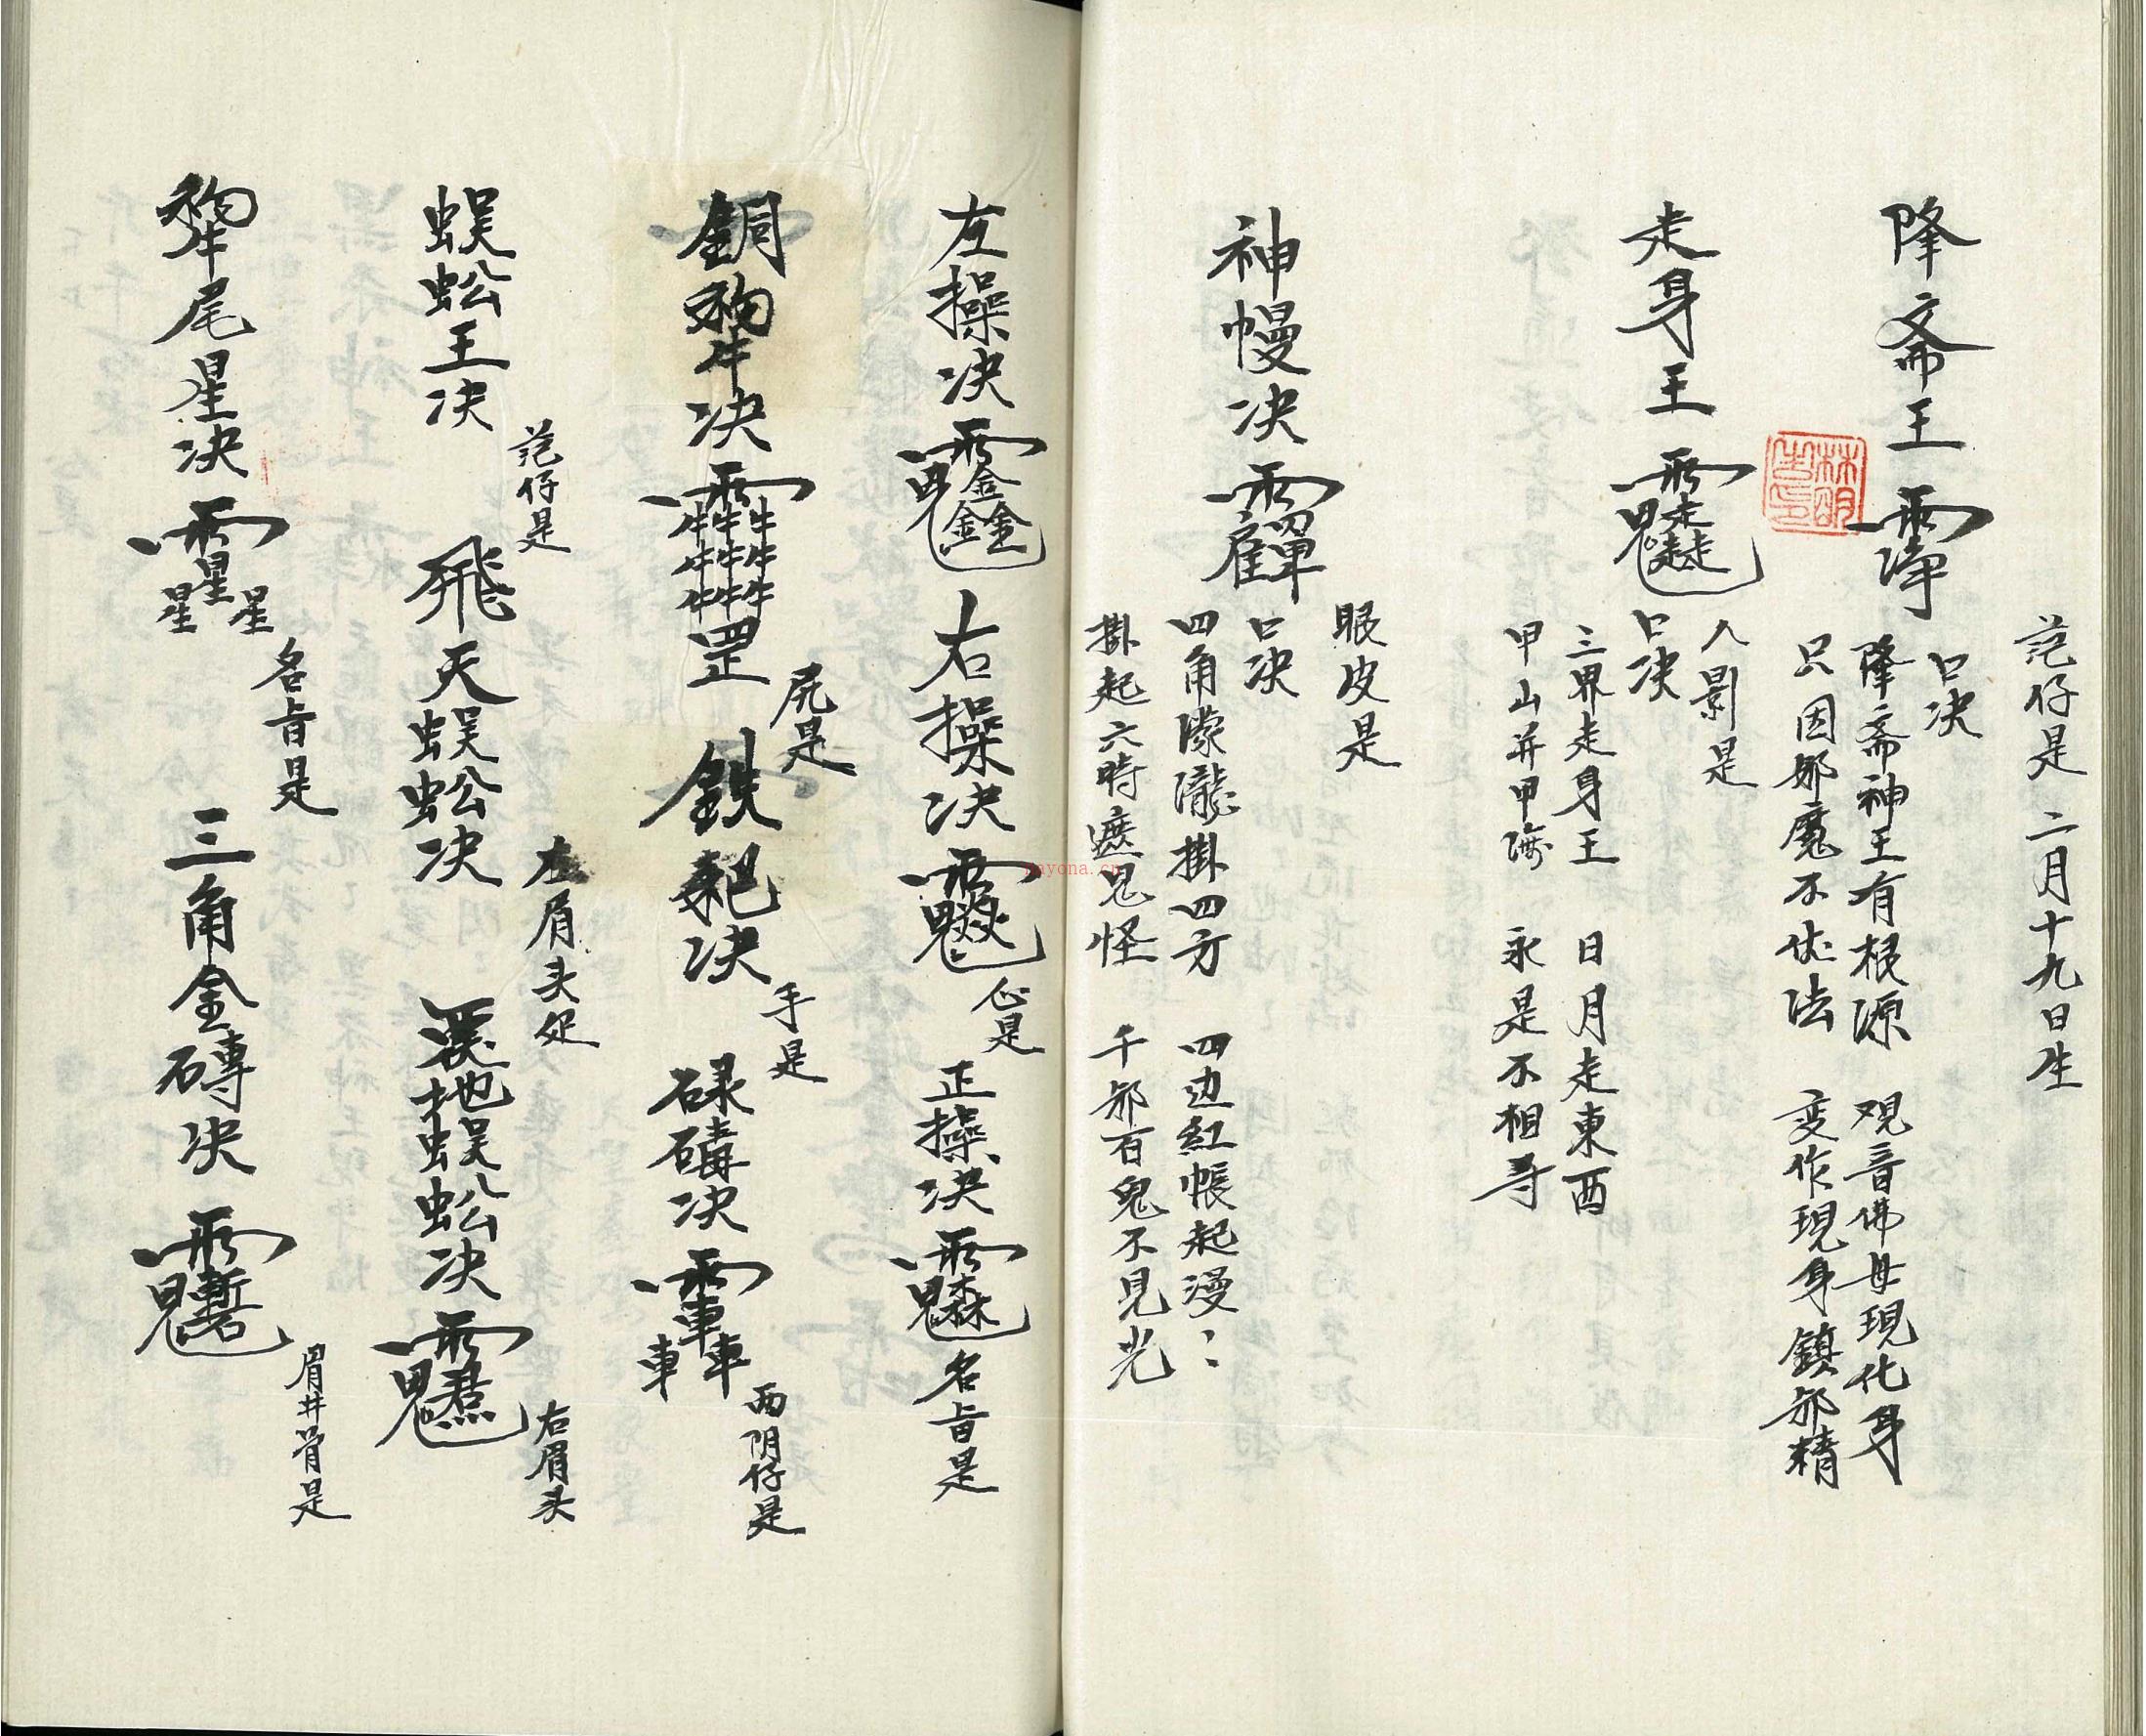 范仔是 二月十九日生
降斋王
口决
降斋神王有根源 观音佛母現化身
只因邪魔不伏法 变作現身鎮邪精
林明
走身王
人影是
口决
三界走身王 日月走東西
甲山并甲海 永是不相寻
神幔决
眼皮是
口决
四角濛瀧掛四方 四边紅帳起漫:
掛起六時遮鬼怪 千邪百鬼不見光
左操决 右操决
心是
正操决
名旨是
銅 决
罡
尻是
鉄耙决
手是
碌 决
两阴仔是
蜈蚣王决
范仔是
飛天蜈蚣决
左眉头是
地蜈蚣决
右眉头
尾星决
名旨是
三角金磚决
眉井骨是
nayona.cn